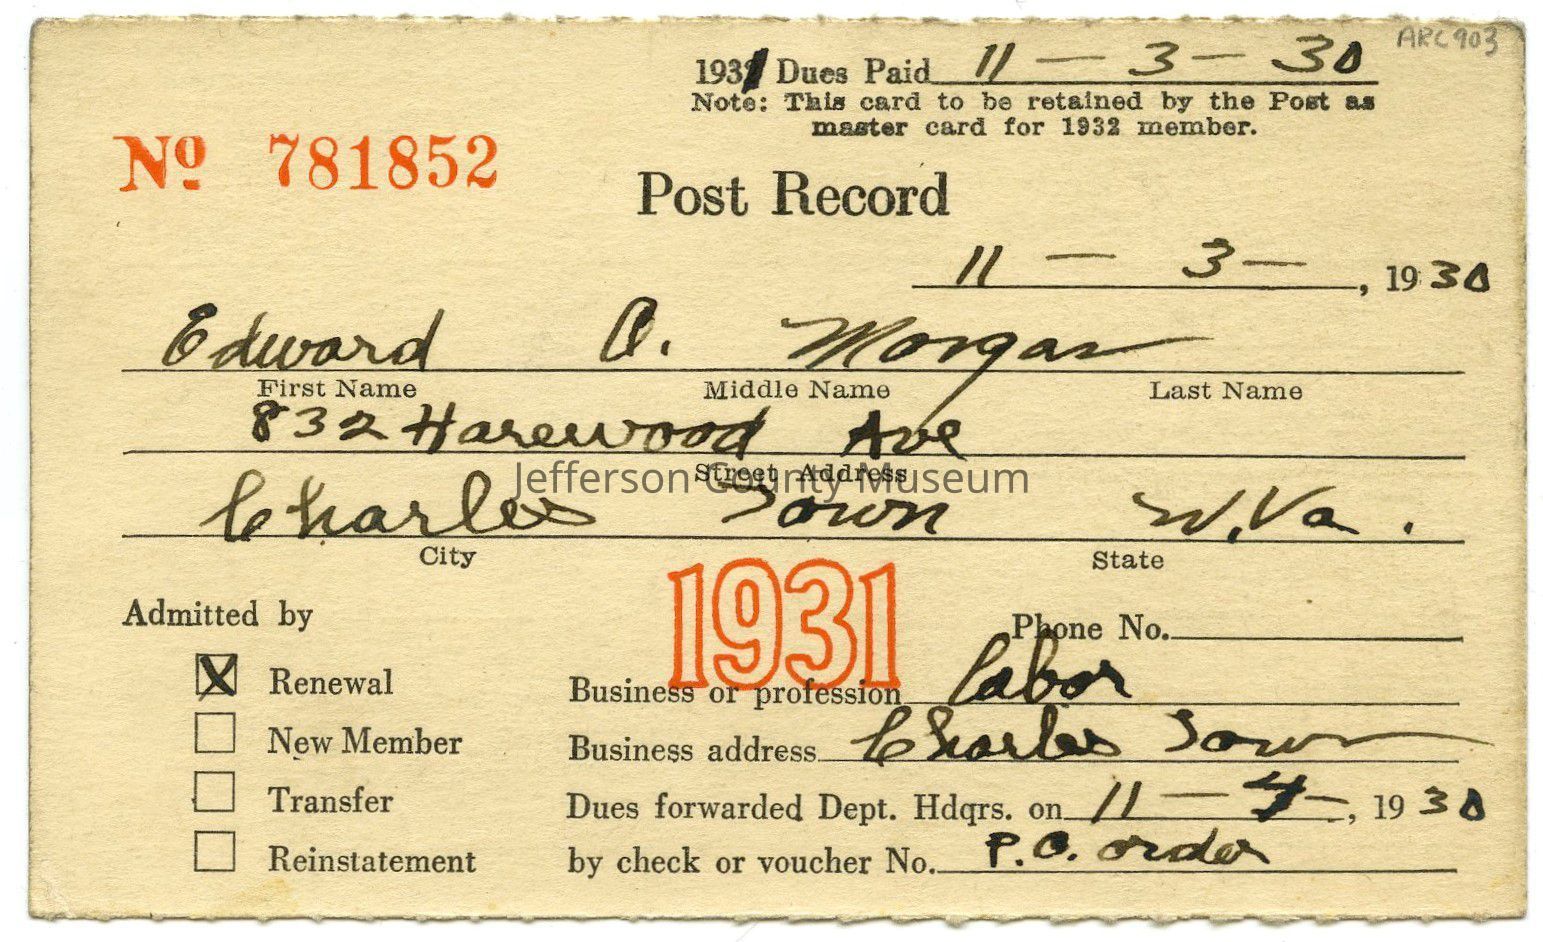 ARC 903
1931 Dues Paid 11 — 3 — 30
Note: This card to be retained by the Post as
master card for 1932 member.
No 781852
Post Record
11 — 3 — , 1930
Edward O. Morgan
First Name Middle Name Last Name
832 Harewood Ave
Street Address
Jefferson County Museum
Charles Town W.Va.
City State
1931
Admitted by
Phone No.
X Renewal
Business or profession Labor
New Member
Business address Charles Town
Transfer
Dues forwarded Dept. Hdqrs. on 11 — 4 — , 1930
Reinstatement
by check or voucher No. P.O. order